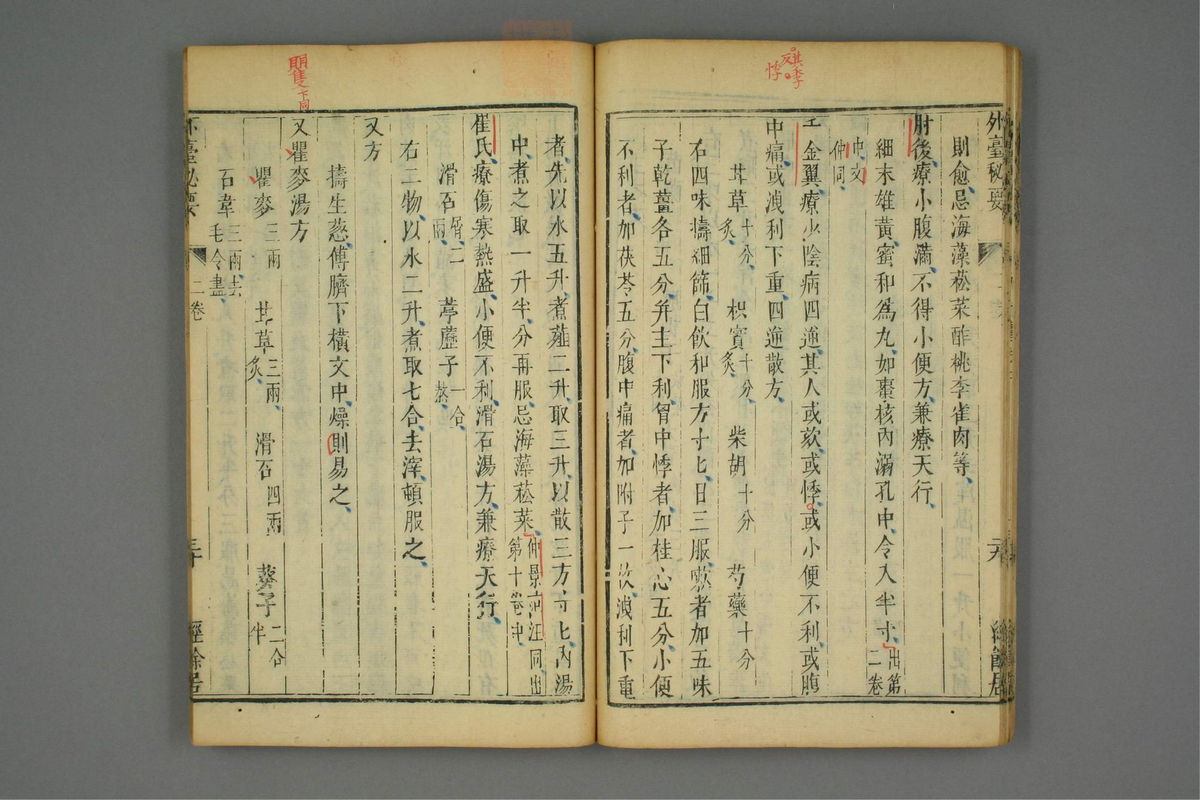 外臺秘要
則愈忌海藻菘菜酢桃李雀肉等
肘後療小腹滿不得小便方兼療天行
細末雄黃蜜和為丸如棗核內溺孔中令入半寸出第
二卷
中文
仲同
金翼療少陰病四逆其人或欬或悸或小便不利或腹
中痛或洩利下重四逆散方
甘草十分炙
枳實十分炙
柴胡十分
芍藥十分
右四味擣細篩白飲和服方寸匕日三服嗽者加五味
子乾薑各五分并主下利胷中悸者加桂心五分小便
不利者加茯苓五分腹中痛者加附子一枚洩利下重
者先以水五升煮薤二升取三升以散三方寸匕內湯
中煮之取一升半分再服忌海藻菘菜仲景
同出
第十卷中
崔氏療傷寒熱盛小便不利滑石湯方兼療天行
滑石屑二兩
葶藶子一合熬
右二物以水二升煮取七合去滓頓服之
又方
擣生葱傅臍下橫文中燥則易之
又瞿麥湯方
瞿麥三兩
甘草三兩炙
滑石四兩
葵子二合半
石韋三兩去毛令盡
二卷
三十
經餘居